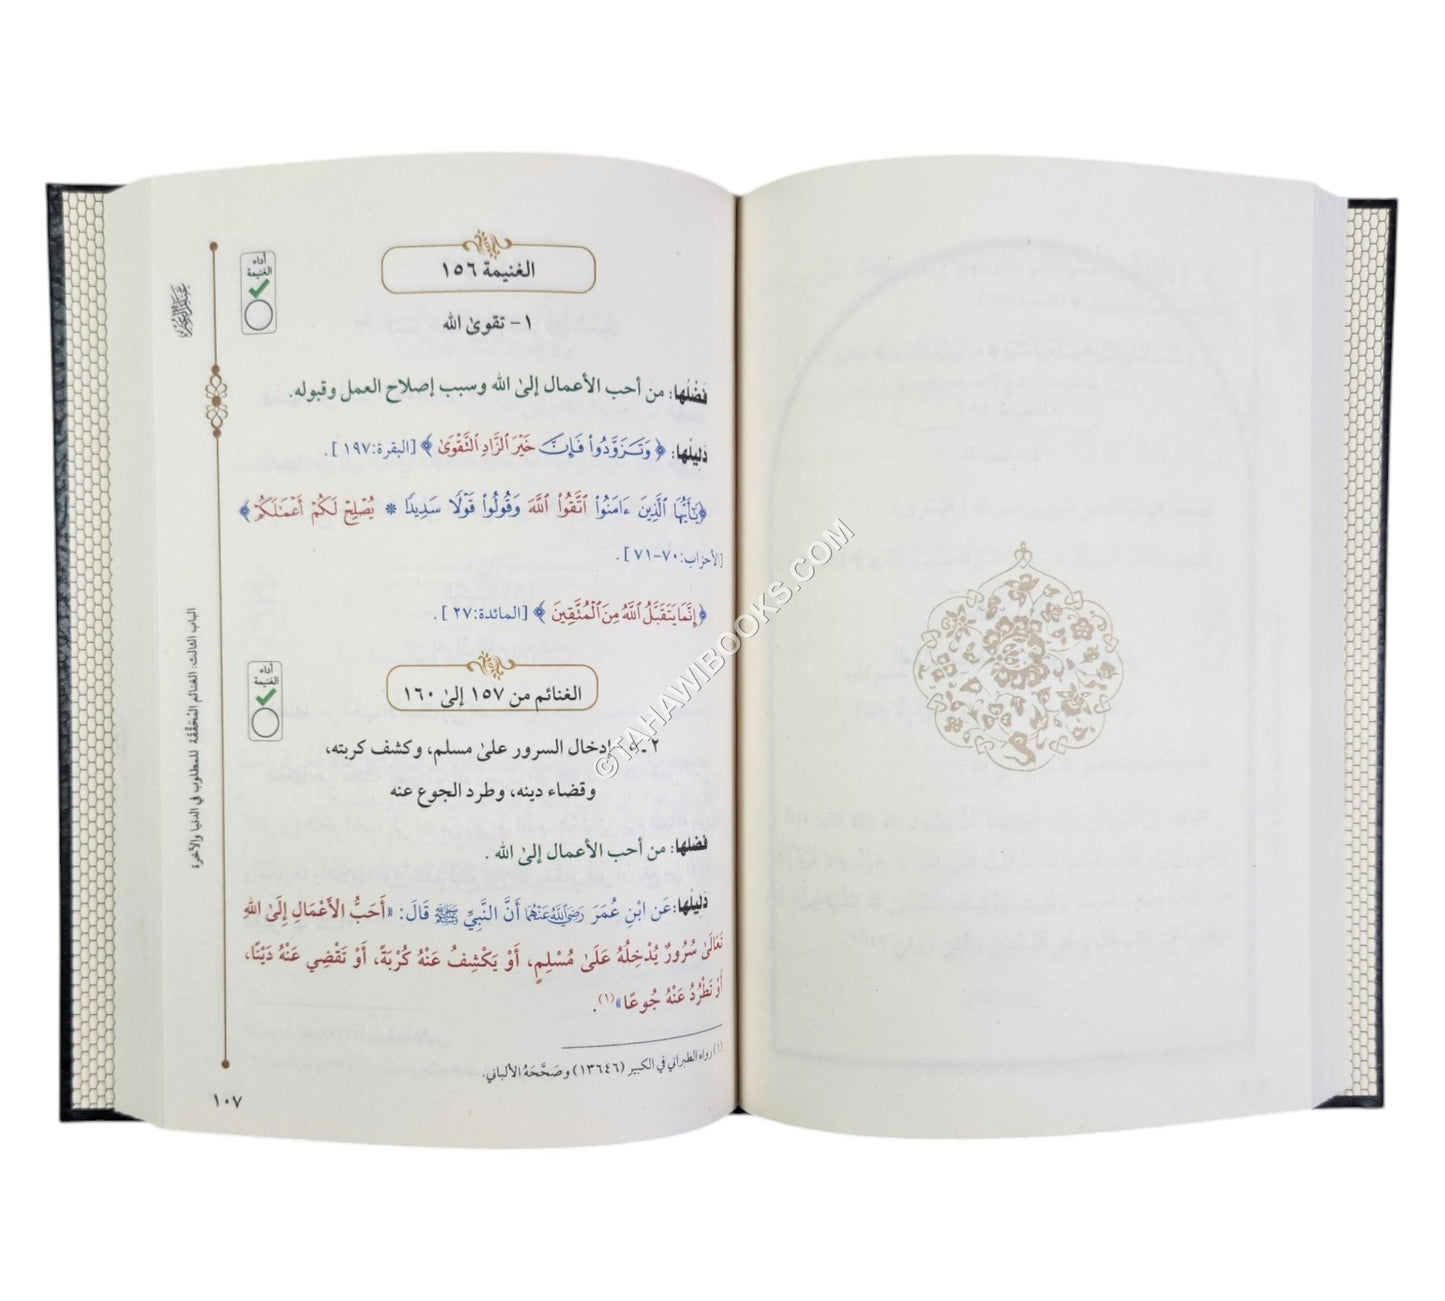 الغنيمة ١٥٦
أداء
الغنيمة
١- تقوىٰ الله
فَضْلُها: من أحب الأعمال إلىٰ الله وسبب إصلاح العمل وقبوله.
دَلِيلُها: ﴿ وَتَزَوَّدُوا۟ فَإِنَّ خَيْرَ ٱلزَّادِ ٱلتَّقْوَىٰ ﴾ [البقرة:١٩٧].
﴿يَٰٓأَيُّهَا ٱلَّذِينَ ءَامَنُوا۟ ٱتَّقُوا۟ ٱللَّهَ وَقُولُوا۟ قَوْلًا سَدِيدًا * يُصْلِحْ لَكُمْ أَعْمَٰلَكُمْ﴾
[الأحزاب:٧٠-٧١].
﴿إِنَّمَا يَتَقَبَّلُ ٱللَّهُ مِنَ ٱلْمُتَّقِينَ ﴾ [المائدة:٢٧].
الغنائم من ١٥٧ إلىٰ ١٦٠
أداء
الغنيمة
٢ـ ٥- إدخال السرور علىٰ مسلم، وكشف كربته،
وقضاء دينه، وطرد الجوع عنه
فضلها: من أحب الأعمال إلىٰ الله .
دَلِيلُها: عَن ابْنِ عُمَرَ رَضِيَ اللَّهُ عَنْهُمَا أَنَّ النَّبِيَّ ﷺ قَالَ: «أَحَبُّ الأَعْمَالِ إِلَىٰ اللهِ
تَعَالَىٰ سُرُورٌ يُدْخِلُهُ عَلَىٰ مُسْلِمٍ، أَوْ يَكْشِفُ عَنْهُ كُرْبَةً، أَوْ تَقْضِي عَنْهُ دَيْنًا،
أَوْ تَطْرُدُ عَنْهُ جُوعًا»(١).
(١) رواه الطبراني في الكبير (١٣٦٤٦) وصَحَّحَهُ الألباني.
الباب الثالث: الغنائم المُحَقِّقَة للمطلوب في الدنيا والآخرة
١٠٧
©TAHAWIBOOKS.COM